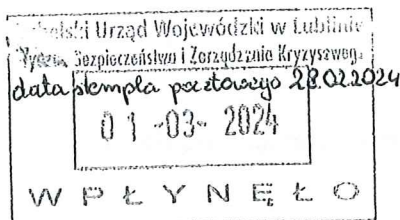 Lubelski Urząd Wojewódzki w Lublinie
Wydział Bezpieczeństwa i Zarządzania Kryzysowego
data stempla pocztowego 28.02.2024
01 -03- 2024
WPŁYNĘŁO